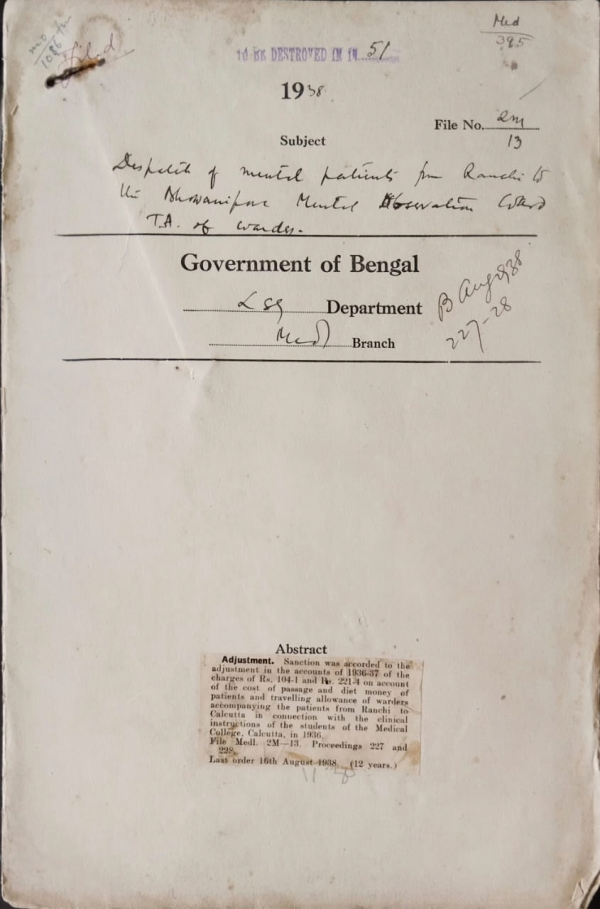 Med
395
Filed
TO BE DESTROYED IN 19 51
1938
File No. 2M
13
Subject
Despatch of mental patients from Ranchi to
the Bhowanipore Mental Observation Ward
T.A. of warders.
Government of Bengal
LSG Department
Medl Branch
B Aug 1938
227-28
Abstract
Adjustment. Sanction was accorded to the
adjustment in the accounts of 1936-37 of the
charges of Rs. 104-1 and Rs. 221-4 on account
of the cost of passage and diet money of
patients and travelling allowance of warders
accompanying the patients from Ranchi to
Calcutta in connection with the clinical
instructions of the students of the Medical
College, Calcutta, in 1936.
File Medl. 2M—13. Proceedings 227 and
228.
Last order 16th August 1938. (12 years.)